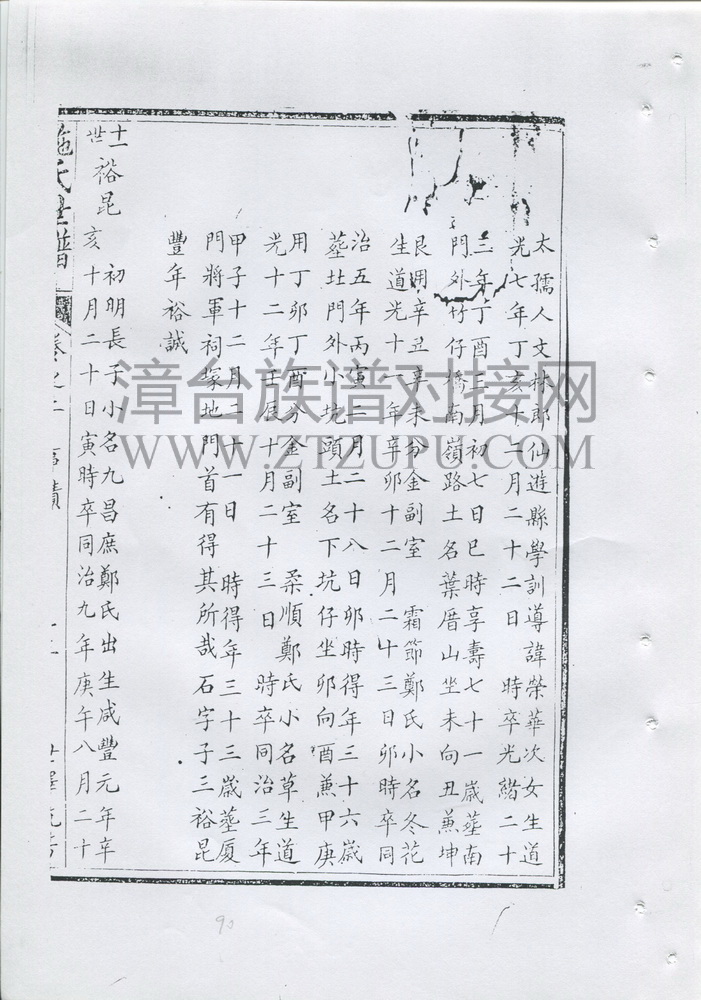 太孺人文林郎仙遊縣學訓導諱榮華次女生道
光七年丁亥十二月二十二日　時卒光緒二十
三年丁酉三月初七日巳時享壽七十一歲塟南
門外竹仔橋南嶺路土名葉厝山坐未向丑兼坤
艮用辛丑辛未分金副室　霜節鄭氏小名冬花
生道光十一年辛卯十二月二十三日卯時卒同
治五年丙寅二月二十八日卯時得年三十六歲
塟北門外小坑頭土名下坑仔坐卯向酉兼甲庚
用丁卯丁酉分金副室　柔順鄭氏小名草生道
光十二年壬辰十月二十三日　時卒同治三年
甲子十二月二十一日　時得年三十三歲塟厦
門將軍祠塚地門首有得其所哉石字子三裕昆
豐年裕誠
十一世
裕昆　初明長子小名九昌庶鄭氏出生咸豐元年辛
亥十月二十日寅時卒同治九年庚午八月二十
施氏世譜　卷之二
漳台族谱对接网
WWW.ZTZUPU.COM
90